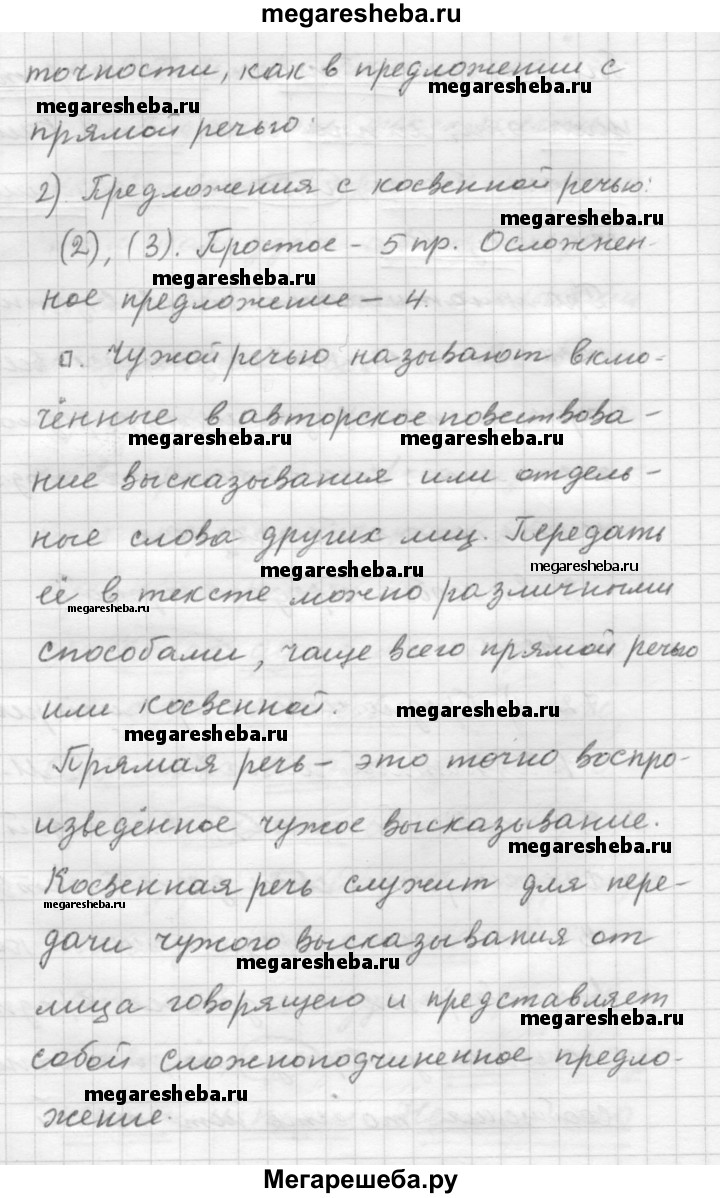 megaresheba.ru
точности, как в предложении с
megaresheba.ru
megaresheba.ru
прямой речью.
2) Предложения с косвенной речью:
megaresheba.ru
(2), (3). Простое - 5 пр. Осложнен-
megaresheba.ru
ное предложение - 4.
п. Чужой речью называют вклю-
чённые в авторское повествова-
megaresheba.ru megaresheba.ru
ние высказывания или отдель-
ные слова других лиц. Передать
megaresheba.ru megaresheba.ru
её в тексте можно различными
megaresheba.ru
способами, чаще всего прямой речью
или косвенной.
megaresheba.ru
megaresheba.ru
Прямая речь - это точно воспро-
изведённое чужое высказывание.
megaresheba.ru
Косвенная речь служит для пере-
megaresheba.ru
дачи чужого высказывания от
megaresheba.ru
лица говорящего и представляет
megaresheba.ru
собой сложноподчиненное предло-
megaresheba.ru
жение.
Мегарешеба.ру